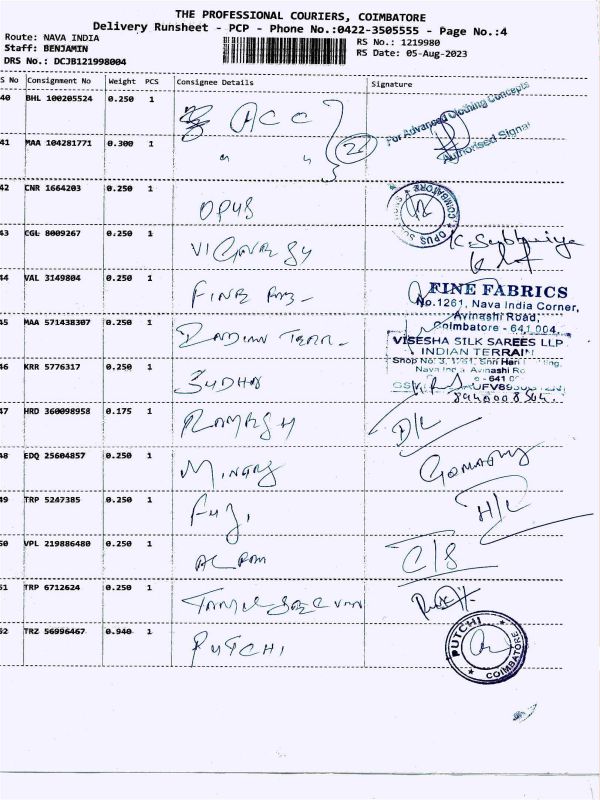 THE PROFESSIONAL COURIERS, COIMBATORE
Delivery Runsheet - PCP - Phone No.:0422-3505555 - Page No.:4
Route: NAVA INDIA
RS No.: 1219980
Staff: BENJAMIN
RS Date: 05-Aug-2023
DRS No.: DCJB121998004
S No Consignment No Weight PCS Consignee Details Signature
40 BHL 100205524 0.250 1 ACC
For Advanced Clothing Concepts
Authorised Signat
41 MAA 104281771 0.300 1 " "
42 CNR 1664203 0.250 1 OPUS
COIMBATORE
OPUS
43 CGL 8009267 0.250 1
44 VAL 3149804 0.250 1 FINE FAB-
FINE FABRICS
No.1261, Nava India Corner,
Avinashi Road,
Coimbatore - 641 004.
45 MAA 571438307 0.250 1 TERR-
VISESHA SILK SAREES LLP
INDIAN TERRAIN
Shop No: 3, 1261, Shri Hari
Nava India Avinashi Ro
46 KRR 5776317 0.250 1 SUDHA
47 HRD 360098958 0.175 1 RAMESH D/L
48 EDQ 25604857 0.250 1 GOMATHY
49 TRP 5247385 0.250 1 H/L
50 VPL 219886480 0.250 1 C/S
51 TRP 6712624 0.250 1
52 TRZ 56996467 0.940 1 PUTCHI
PUTCHI
COIMBATORE